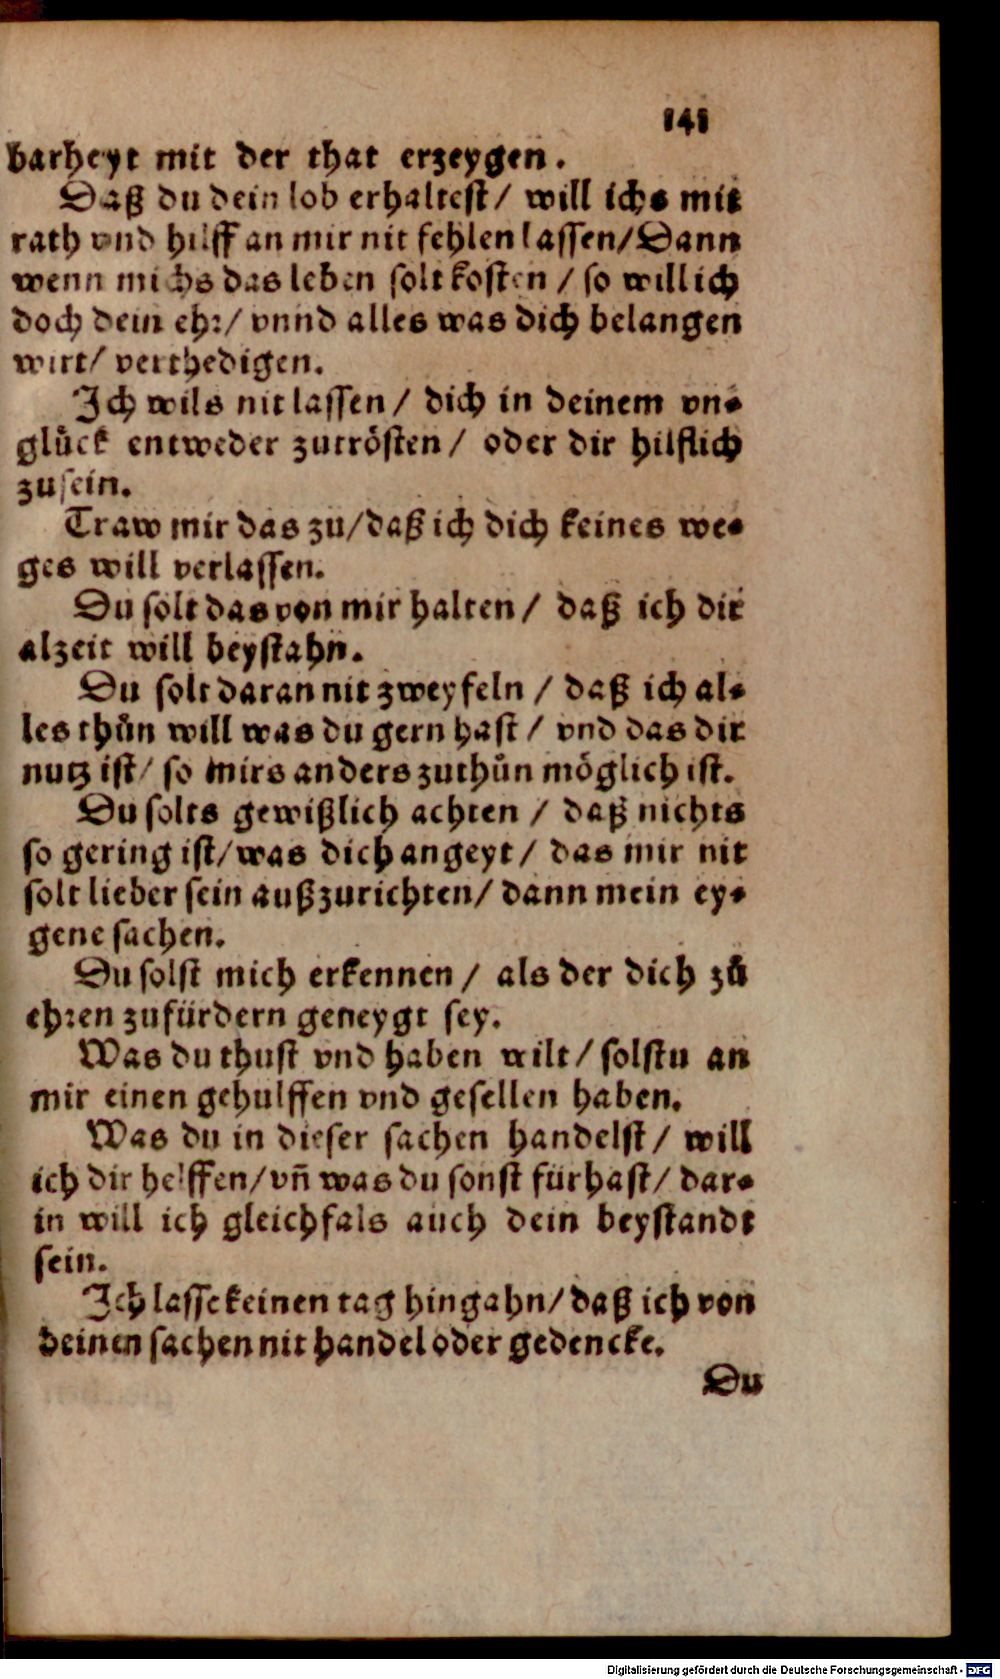 141
barheyt mit der that erzeygen.
Daß du dein lob erhaltest/ will ichs mit
rath vnd hilff an mir nit fehlen lassen/Dann
wenn michs das leben solt kosten / so will ich
doch dein ehr/ vnnd alles was dich belangen
wirt/ verthedigen.
Ich wils nit lassen / dich in deinem vn-
glück entweder zutrösten / oder dir hilflich
zusein.
Traw mir das zu/daß ich dich keines we-
ges will verlassen.
Du solt das von mir halten / daß ich dir
alzeit will beystahn.
Du solt daran nit zweyfeln / daß ich al-
les thůn will was du gern hast / vnd das dir
nutz ist/ so mirs anders zuthůn möglich ist.
Du solts gewißlich achten / daß nichts
so gering ist/was dich angeyt / das mir nit
solt lieber sein außzurichten/ dann mein ey-
gene sachen.
Du solst mich erkennen / als der dich zů
ehren zufürdern geneygt sey.
Was du thust vnd haben wilt / solstu an
mir einen gehulffen vnd gesellen haben.
Was du in dieser sachen handelst / will
ich dir helffen/vñ was du sonst fürhast/ dar-
in will ich gleichfals auch dein beystandt
sein.
Ich lasse keinen tag hingahn/daß ich von
deinen sachen nit handel oder gedencke.
Du
Digitalisierung gefördert durch die Deutsche Forschungsgemeinschaft - DFG